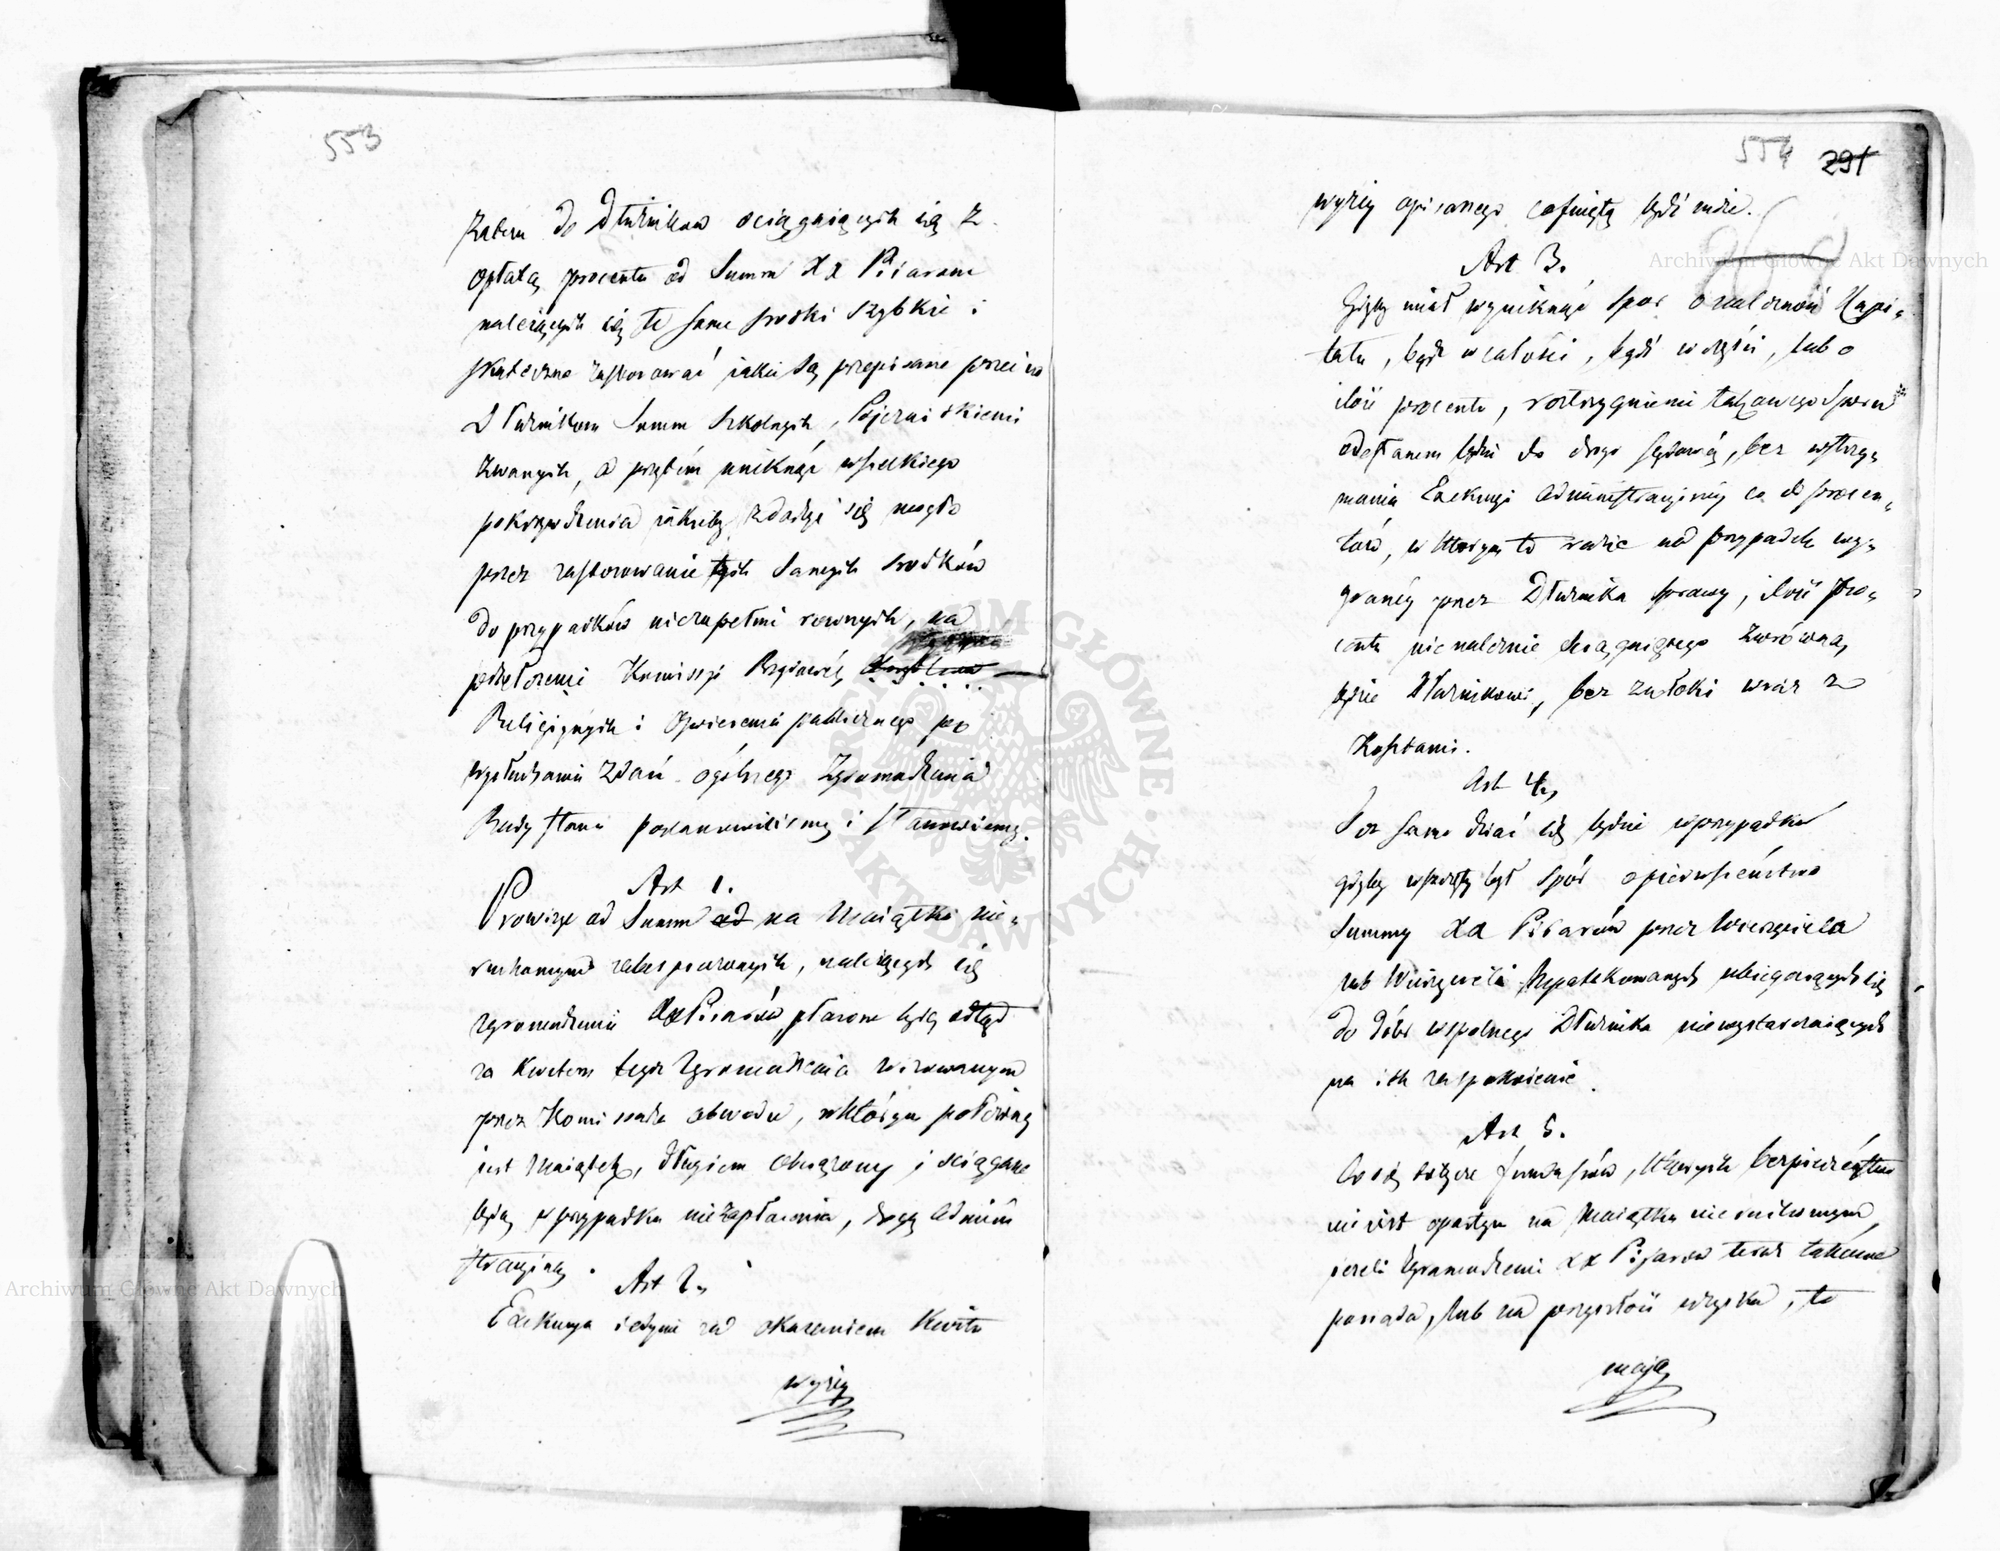 553
do Dłużników ociągaiących się z
opłatą procentu od Summ XX Piiarom
należących się te same środki szybkie i
skuteczne zastosować iakie są przepisane przeciw
Dłużnikom Summ Szkolnych, Pojezuickiemi
zwanych, a przytém uniknąć wszelkiego
pokrzywdzenia iakieby zdarzyć się mogło
przez zastosowanie tych samych środków
do przypadków niezupełnie rownych, na
przełożenie Kommissyi Rządowéy
Religijnych i Oświecenia publicznego po
wysłuchaniu Zdań ogólnego Zgromadzenia
Rady Stanu postanowiliśmy i stanowiemy.
Art 1.
Prowizye od Summ na Maiątki nie=
ruchomym zabespieczonych, należących się
Zgromadzeniu XX Piiarów, płacone będą odtąd
za Kwitem tegoż Zgromadzenia wizowanym
przez Komissarza obwodu, w którym położony
iest Maiątek, długiem obciążony i ściągane
będą w przypadku niezapłacenia, drogą Admini
stracyiną.
Art 2.
Exekucya iedynie za okazaniem Kwitu
wyżéy
554 291
wyżéy opisanego cofniętą bydź może.
Art 3.
Gdyby miał wyniknąć spór o należność Kapi=
tału, bądź w całości, bądź w części, lub o
ilość procentu, rozstrzygnienie takowego Sporu
odesłanem będzie do drogi Sądowéy, bez wstrzy=
mania Exekucyi Administracyinéy co do procen=
tów, w którym to razie na przypadek wy=
granéy przez Dłużnika sprawy, ilość pro=
centu nienależnie ściągniętego zwróconą
będzie Dłużnikowi, bez zwłoki wraz z
Kosztami.
Art 4.
Toż samo dziać się będzie w przypadku
gdyby wszczęty był spór o pierwszeństwo
Summy XX Piiarów przez Wierzyciela
lub Wierzycieli hypotekowanych ubiegaiących się
do dóbr wspólnego Dłużnika niewystarczaiących
na ich zaspokoienie.
Art 5.
Co się tycze funduszów, których bezpieczeństwo
nie iest oparte na Maiątku nieruchomym,
ieżeli Zgromadzenie XX Piiarów teraz takowe
posiada, lub na przyszłość uzyska, to
maią
Archiwum Główne Akt Dawnych
Archiwum Główne Akt Dawnych
ARCHIWUM GŁÓWNE AKT DAWNYCH